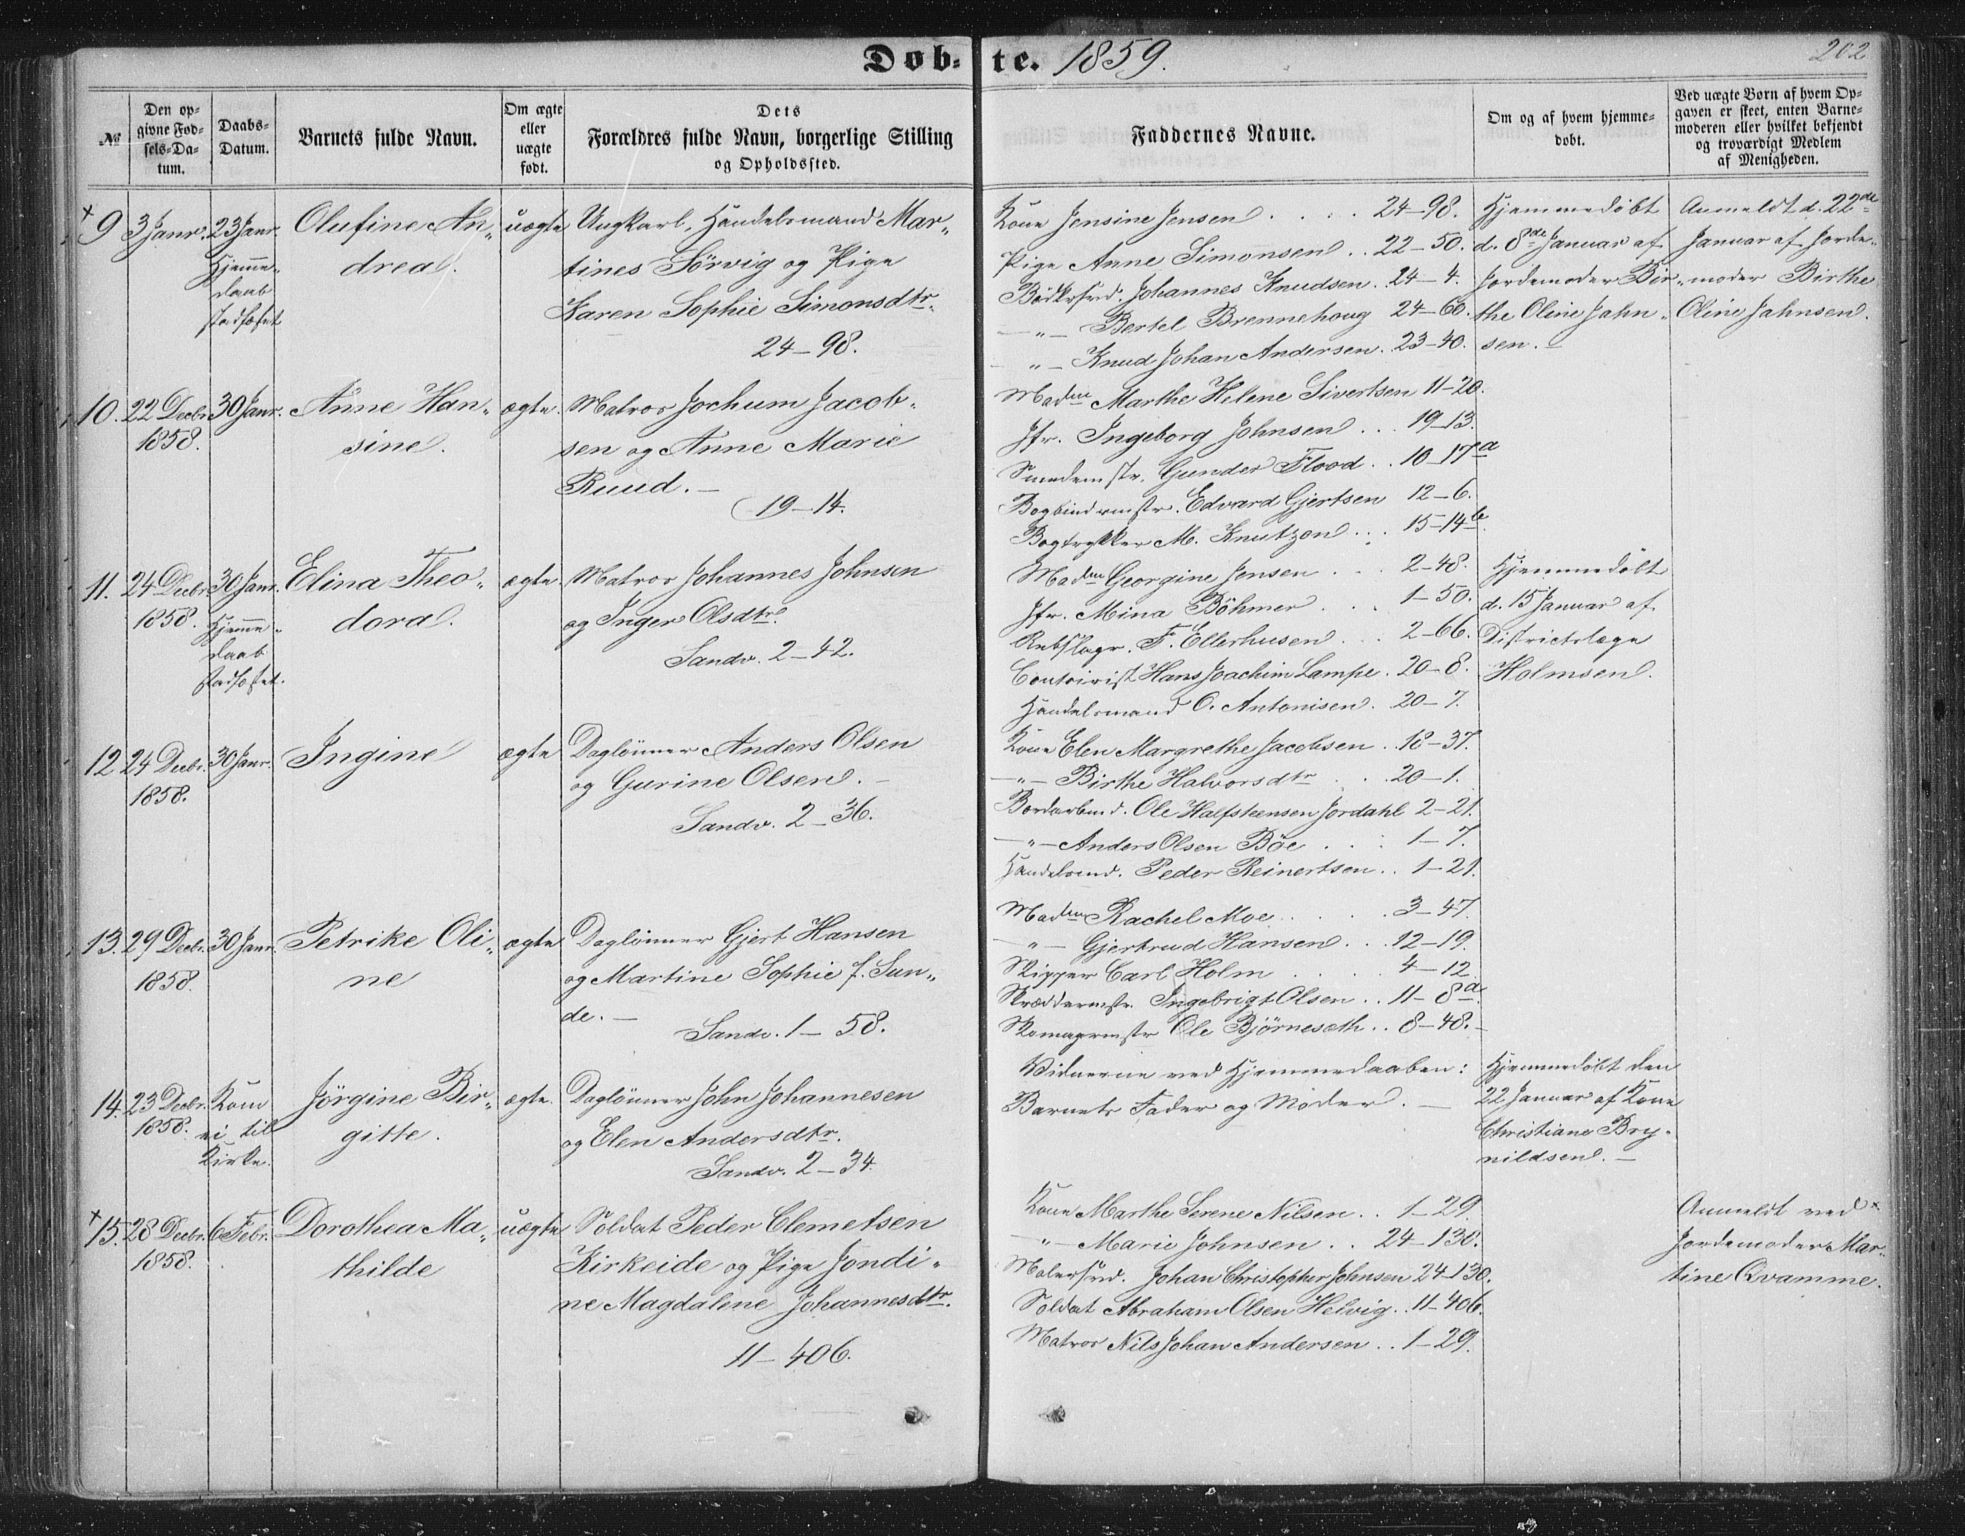 Døb-te. 1859.
202
№
Den op-
givne Fød-
sels-Da-
tum.
Daabs-
Datum.
Barnets fulde Navn.
Om ægte
eller
uægte
født.
Dets
Forældres fulde Navn, borgerlige Stilling
og Opholdssted.
Faddernes Navne.
Om og af hvem hjemme-
døbt.
Ved uægte Børn af hvem Op-
gaven er skeet, enten Barne-
moderen eller hvilket bekjendt
og troværdigt Medlem
af Menigheden.
+ 9 3 Janr. 23 Janr.
Hjemme-
daab
stadfæstet
Olufine An-
drea.
uægte
Ungkarl, Handelsmand Mar-
tines Sörvig og Pige
Karen Sophie Simonsdtr.
24-98.
Kone Jensine Jensen . . . . 24-98.
Pige Anne Simonsen . . 22-50.
Bödkersvd. Johannes Knudsen. 24-4.
-"- Bertel Brennehoug 24-60.
-"- Knud Johan Andersen. 23-40.
Hjemmedøbt
d. 8de Januar af
Jordemoder Bir-
the Oline Jahn-
sen.
Anmeldt d. 22de
Januar af Jorde-
moder Birthe
Oline Jahnsen.
10. 22 Decbr. 30 Janr.
1858.
Anne Han-
sine.
ægte.
Matros Jochum Jacob-
sen og Anne Marie
Ruud.-
19-14.
Madm Marthe Helene Sivertsen 11-20.
Jfr. Ingeborg Johnsen . . . 19-13.
Smedemstr. Gunder Flood . . 10-17a
Bogbindermstr. Edvard Gjertsen 12-6.
Bogtrykker M. Knutzon . . . 15-14b.
11. 24 Decbr. 30 Janr.
1858.
Hjemme-
daab
stadfæstet.
Elina Theo-
dora.
ægte.
Matros Johannes Johnsen
og Inger Olsdtr.
Sandv. 2-42.
Madm Georgine Jensen . . . 2-48.
Jfr. Mina Böhmer . . . 1-50.
Rebslagr. F. Ellerhusen . . . 2-66.
Contoirist Hans Joachim Lampe . 20-8.
Handelsmand O. Antonisen. 20-7.
Hjemmedøbt
d. 15 Januar af
Districtslæge
Holmsen.
12. 24 Decbr. 30 Janr.
1858.
Ingine
ægte
Daglönner Anders Olsen
og Gurine Olsen.-
Sandv. 2-36.
Kone Elen Margrethe Jacobsen . 18-37.
-"- Birthe Halvorsdtr . . . 20-1.
Bordarbmd. Ole Halfstensen Jordahl 2-21.
-"- Anders Olsen Böe . . . 1-7.
Handelsmd. Peder Reinertsen . . 1-21.
13. 29 Decbr. 30 Janr.
1858.
Petrike Oli-
ne
ægte
Daglönner Gjert Hansen
og Martine Sophie f. Sun-
de.-
Sandv. 1-58.
Madm Rachel Moe . . . . 3-47.
-"- Gjertrud Hansen . . . 12-19.
Skipper Carl Holm . . . 4-12.
Skræddermstr. Ingebrigt Olsen . . 11-8a.
Skomagermstr Ole Bjørnesæth . . 8-48.
14. 23 Decbr. Kom
1858. ei til
Kirke.
Jörgine Bir-
gitte.
ægte.
Daglönner John Johannesen
og Elen Andersdtr.
Sandv. 2-34.
Vidnerne ved Hjemmedaaben:
Barnets Fader og Moder.-
Hjemmedøbt den
22 Januar af Kone
Christiane Bry-
nildsen.-
+ 15. 28 Decbr. 6 Febr.
1858.
Dorothea Ma-
thilde
uægte
Soldat Peder Clemetsen
Kirkeide og Pige Jondi-
ne Magdalene Johannesdtr.
11-406.
Kone Marthe Serene Nilsen . . 1-29.
-"- Marie Johnsen . . 24-130.
Malersvd. Johan Christopher Johnsen 24-130.
Soldat Abraham Olsen Helvig . . 11-406.
Matros Nils Johan Andersen . . 1-29.
Anmeldt ved
Jordemoder Mar-
tine Qvamme.